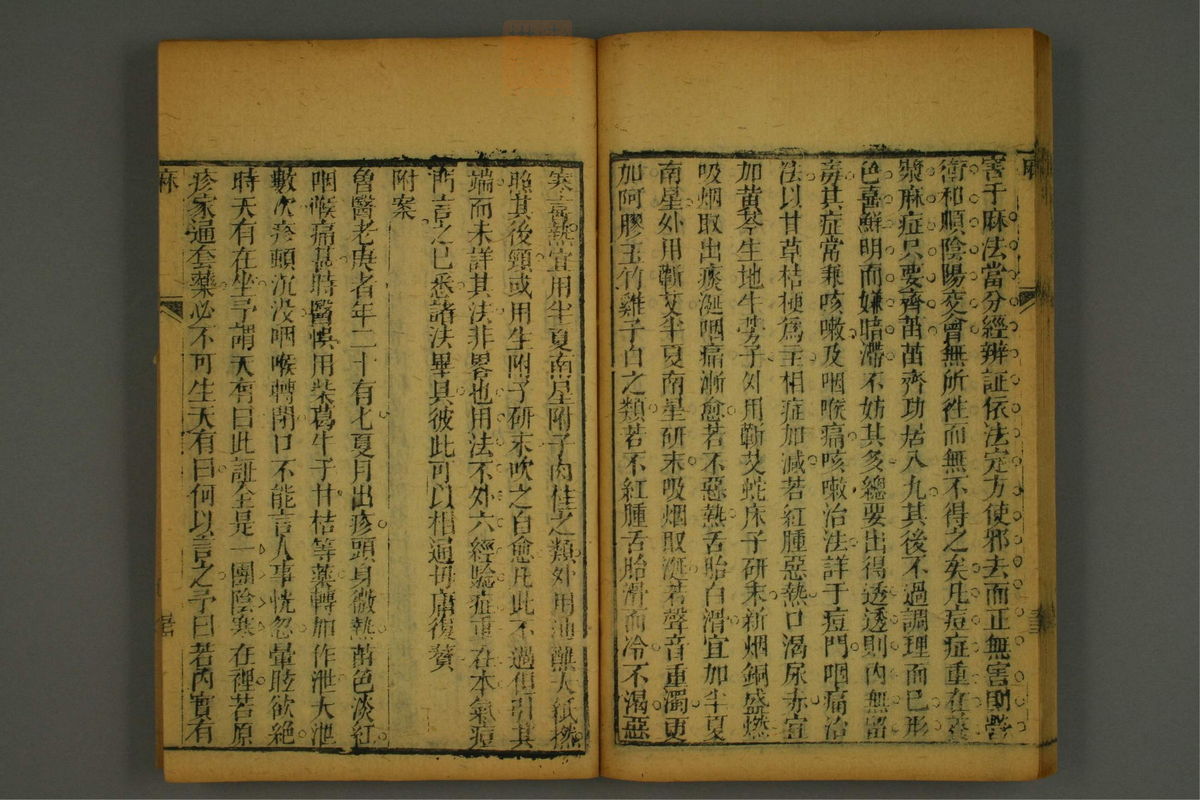 害于麻法當分經辨証依法定方使邪去而正無害則營
衛和順陰陽交會無所往而無不得之矣凡痘症重在養
漿麻症只要齊苗苗齊功居八九其後不過調理而已形
色喜鮮明而嫌暗滯不妨其多總要出得透透則內無留
毒其症常兼咳嗽及咽喉痛咳嗽治法詳于痘門咽痛治
法以甘草桔梗為主相症加減若紅腫惡熱口渴尿赤宜
加黃芩生地牛蒡子外用蘄艾蛇床子研末新烟銅盛燃
吸烟取出痰涎咽痛漸愈若不惡熱舌胎白滑宜加半夏
南星外用蘄艾半夏南星研末吸烟取涎若聲音重濁更
加阿膠玉竹雞子白之類若不紅腫舌胎滑而冷不渴惡
寒喜熱宜用半夏南星附子肉桂之類外用油蘸大紙撚
照其後頸或用生附子研末吹之自愈凡此不過使引其
端而未詳其法非畧也用法不外六經驗症重在本氣痘
門言之已悉諸法畢具彼此可以相通毋庸復贅
附案
魯醫老庚者年二十有七夏月出疹頭身微熱苗色淡紅
咽喉痛甚時醫悞用柴葛牛子甘桔等藥轉加作泄大泄
數次疹頭沉没咽喉轉閉口不能言人事恍忽暈眩欲絕
時天有在坐予謂天有曰此証全是一團陰寒在裡若原
疹家通套藥必不可生天有曰何以言之予曰若內實有
麻